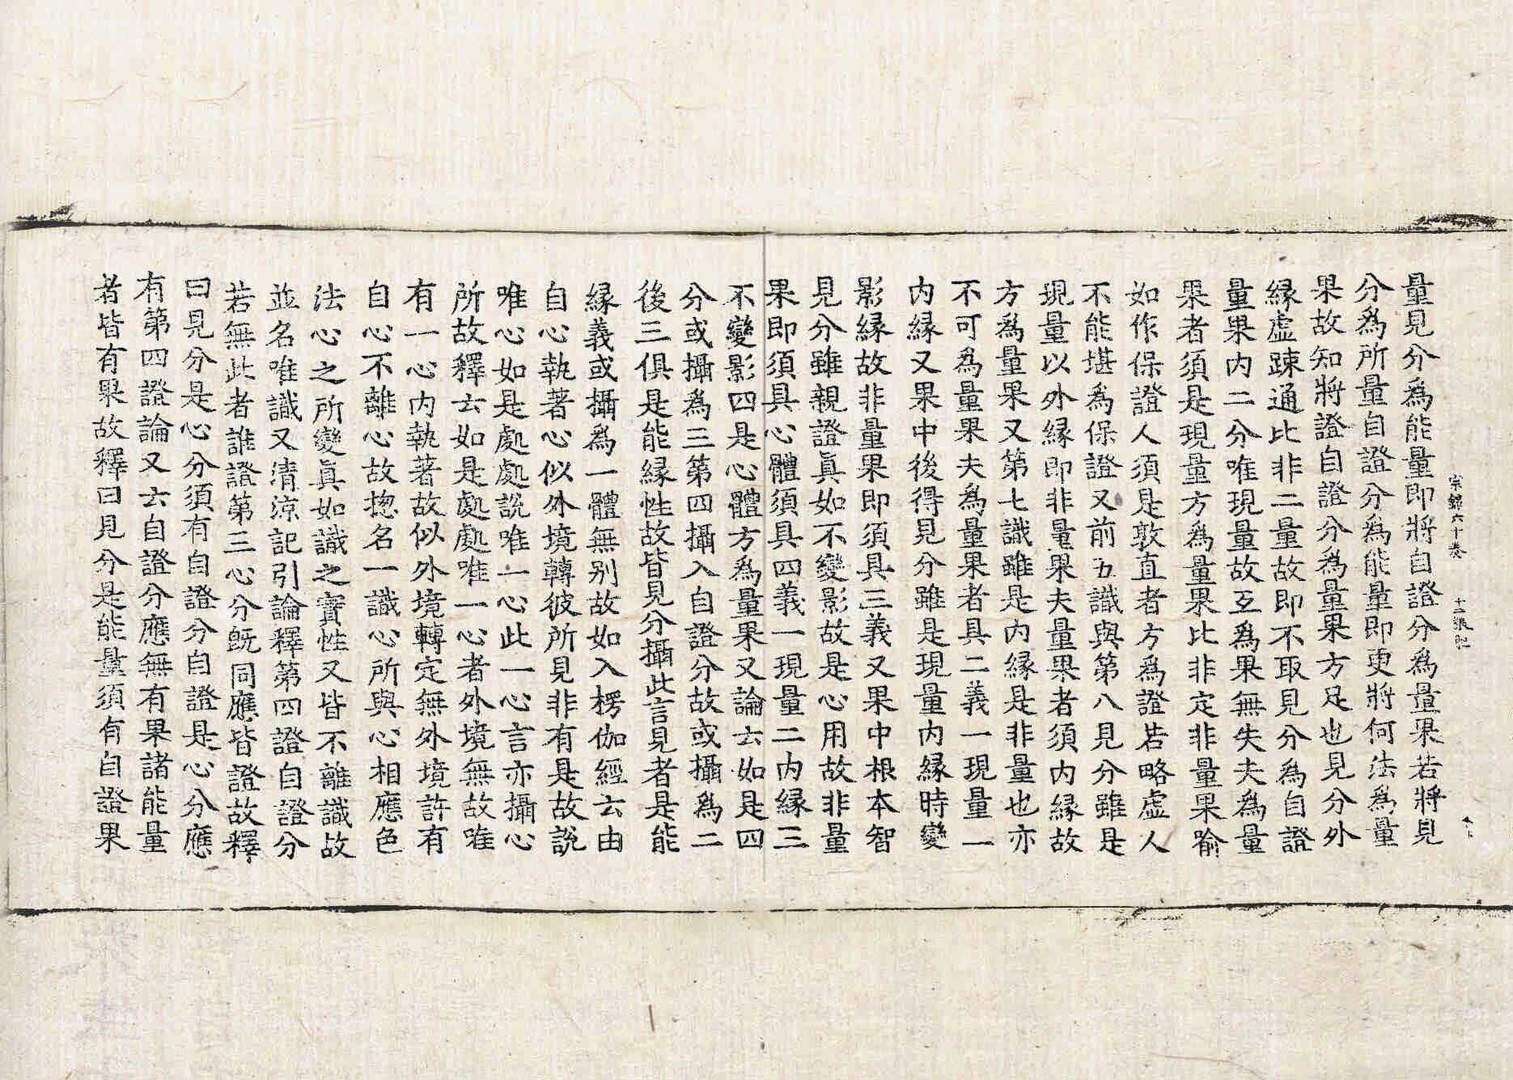 宗鏡六十卷 十二張 肥
量見分爲能量即將自證分爲量果若將見
分爲所量自證分爲能量即更將何法爲量
果故知將證自證分爲量果方足也見分外
縁虛踈通比非二量故即不取見分爲自證
量果内二分唯現量故互爲果無失夫爲量
果者須是現量方爲量果比非定非量果喻
如作保證人須是敦直者方爲證若略虛人
不能堪爲保證又前五識與第八見分雖是
現量以外縁即非量果夫量果者須内縁故
方爲量果又第七識雖是内縁是非量也亦
不可爲量果夫爲量果者具二義一現量二
内縁又果中後得見分雖是現量内縁時變
影縁故非量果即須具三義又果中根本智
見分雖親證眞如不變影故是心用故非量
果即須具心體須具四義一現量二内縁三
不變影四是心體方爲量果又論云如是四
分或攝爲三第四攝入自證分故或攝爲二
後三俱是能縁性故皆見分攝此言見者是能
縁義或攝爲一體無别故如入楞伽經云由
自心執著心似外境轉彼所見非有是故説
唯心如是處處説唯一心此一心言亦攝心
所故釋云如是處處唯一心者外境無故唯
有一心内執著故似外境轉定無外境許有
自心不離心故惣名一識心所與心相應色
法心之所變眞如識之實性又皆不離識故
並名唯識又清涼記引論釋第四證自證分
若無此者誰證第三心分既同應皆證故釋
曰見分是心分須有自證分自證是心分應
有第四證論又云自證分應無有果諸能量
者皆有果故釋曰見分是能量須有自證果